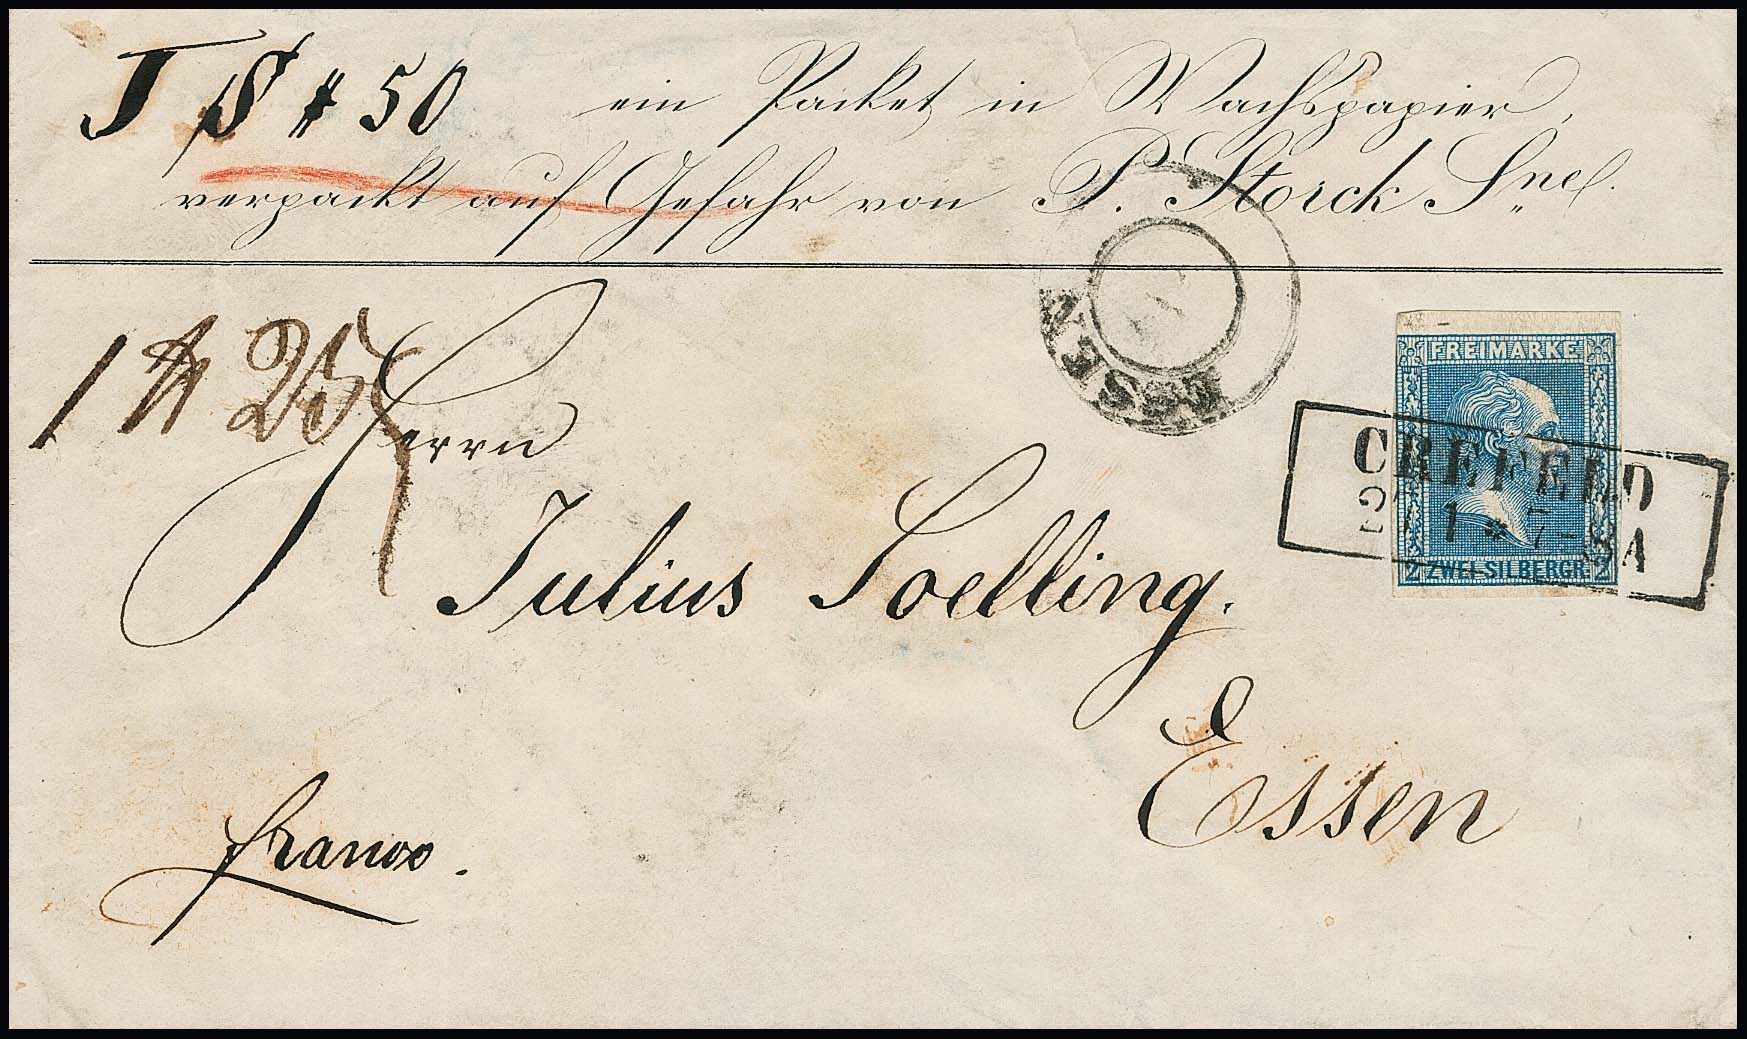 J S # 50 ein Packet in Wachspapier,
verpackt auf Gefahr von P. Storck Sne
ESSEN
1 ℔ 25
Herrn
FREIMARKE
CREFELD
1 * 7-8 A
2 ZWEI SILBERGR. 2
Julius Soelling.
Essen
franco.